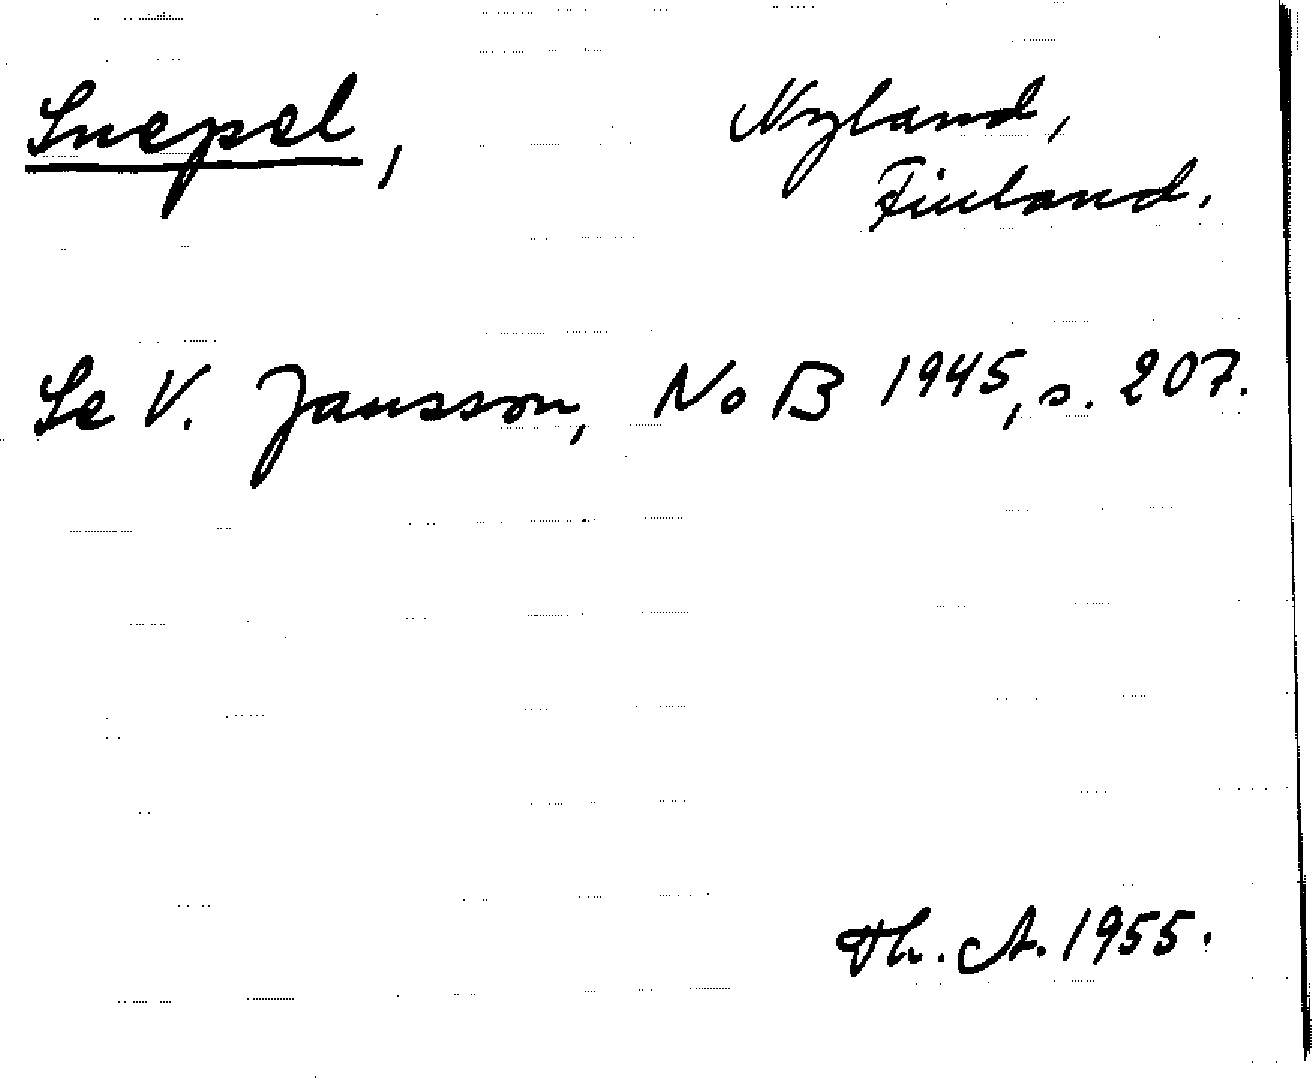 Snepel, Nyland,
Finland.
Se V. Jansson, NoB 1945, s. 207.
Th. A. 1955.